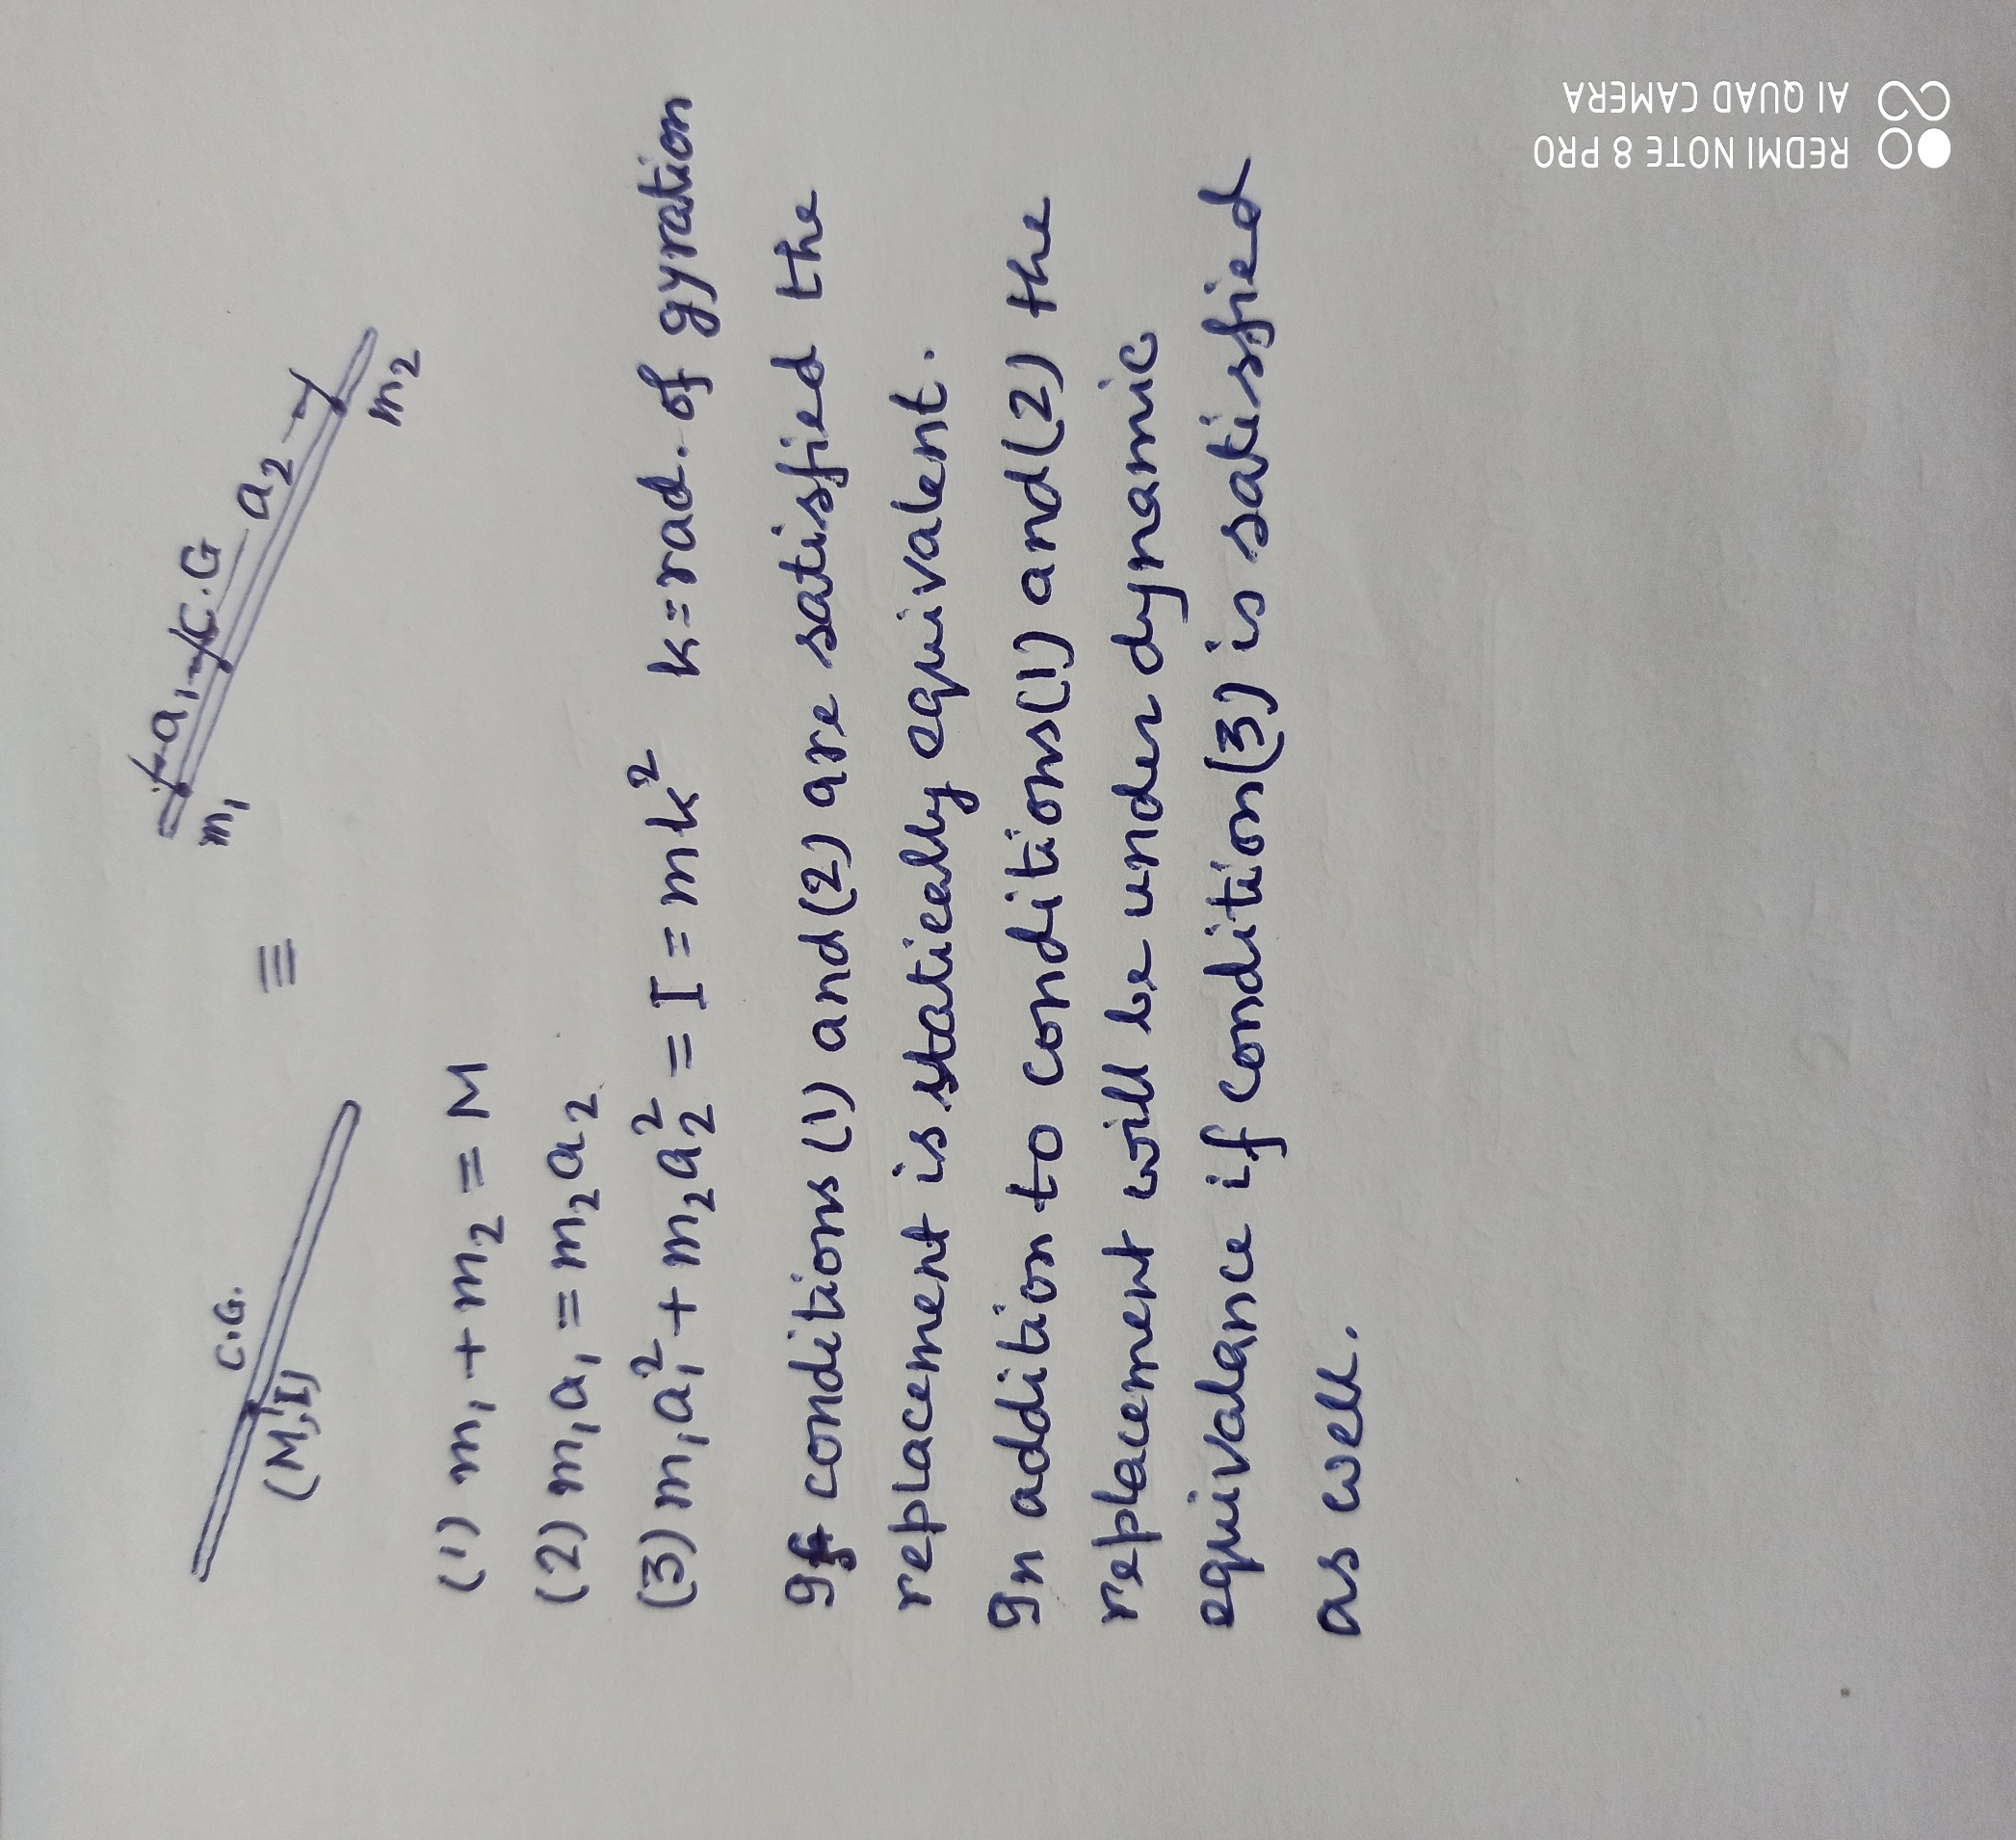 C.G.
(M,I)
≡
a₁ C.G a₂
m₁
m₂
(1) m₁ + m₂ = M
(2) m₁a₁ = m₂a₂
(3) m₁a₁² + m₂a₂² = I = mk² k=rad. of gyration
If conditions (1) and (2) are satisfied the
replacement is statically equivalent.
In addition to conditions (1) and (2) the
replacement will be under dynamic
equivalance if condition (3) is satisfied
as well.
REDMI NOTE 8 PRO
AI QUAD CAMERA